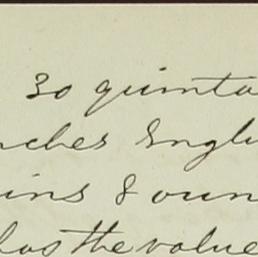 30 quinta
nches Englis
ins & oun
has the value